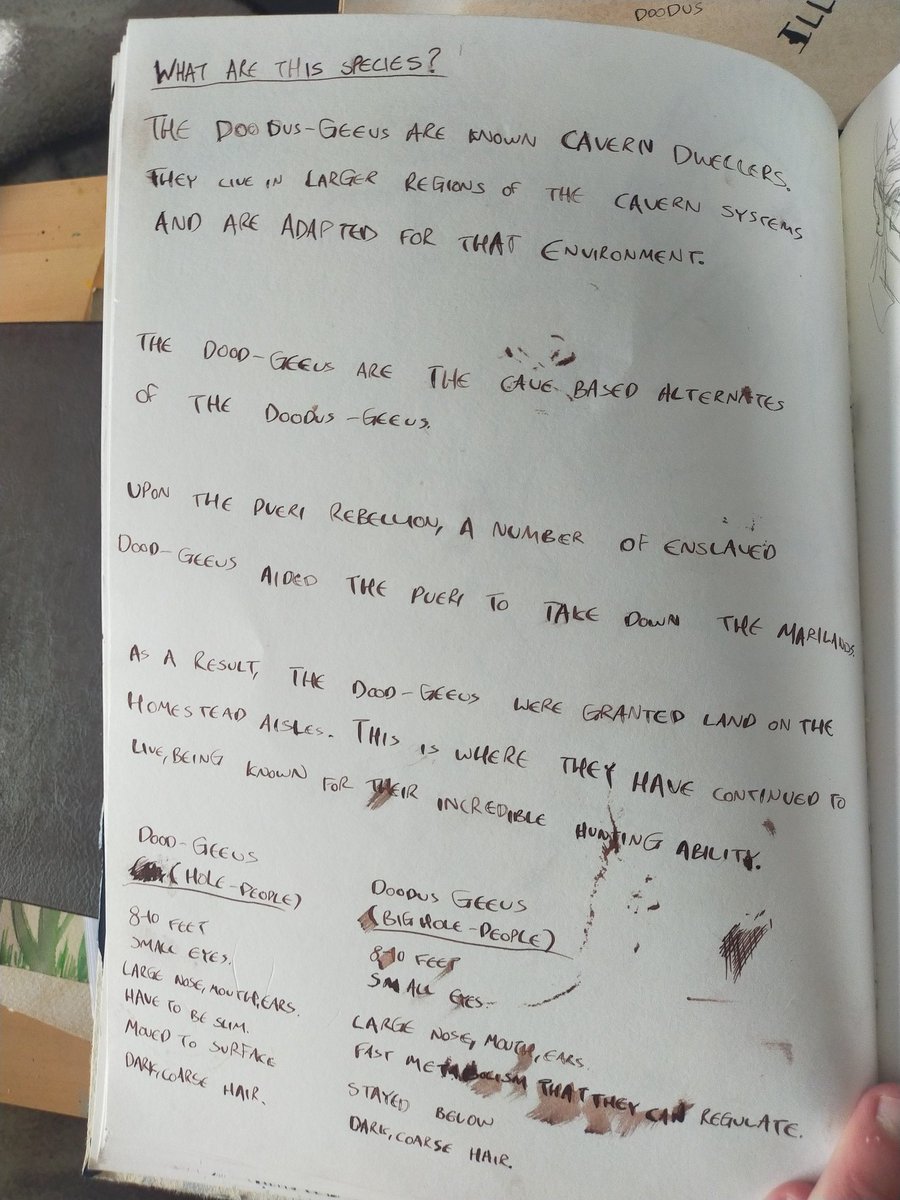 DOODUS
ILL
WHAT ARE THIS SPECIES?
THE DOODUS-GEEUS ARE KNOWN CAVERN DWELLERS.
THEY LIVE IN LARGER REGIONS OF THE CAVERN SYSTEMS
AND ARE ADAPTED FOR THAT ENVIRONMENT.
THE DOOD-GEEUS ARE THE CAVE BASED ALTERNATES
OF THE DOODUS-GEEUS.
UPON THE PUERI REBELLION, A NUMBER OF ENSLAVED
DOOD-GEEUS AIDED THE PUERI TO TAKE DOWN THE MARILANDS.
AS A RESULT, THE DOOD-GEEUS WERE GRANTED LAND ON THE
HOMESTEAD AISLES. THIS IS WHERE THEY HAVE CONTINUED TO
LIVE, BEING KNOWN FOR THEIR INCREDIBLE HUNTING ABILITY.
DOOD-GEEUS
(HOLE-PEOPLE)
8-10 FEET
SMALL EYES.
LARGE NOSE, MOUTH, EARS.
HAVE TO BE SLIM.
MOVED TO SURFACE
DARK, COARSE HAIR.
DOODUS GEEUS
(BIG HOLE-PEOPLE)
8-10 FEET
SMALL EYES
LARGE NOSE, MOUTH, EARS.
FAST METABOLISM THAT THEY CAN REGULATE.
STAYED BELOW
DARK, COARSE HAIR.